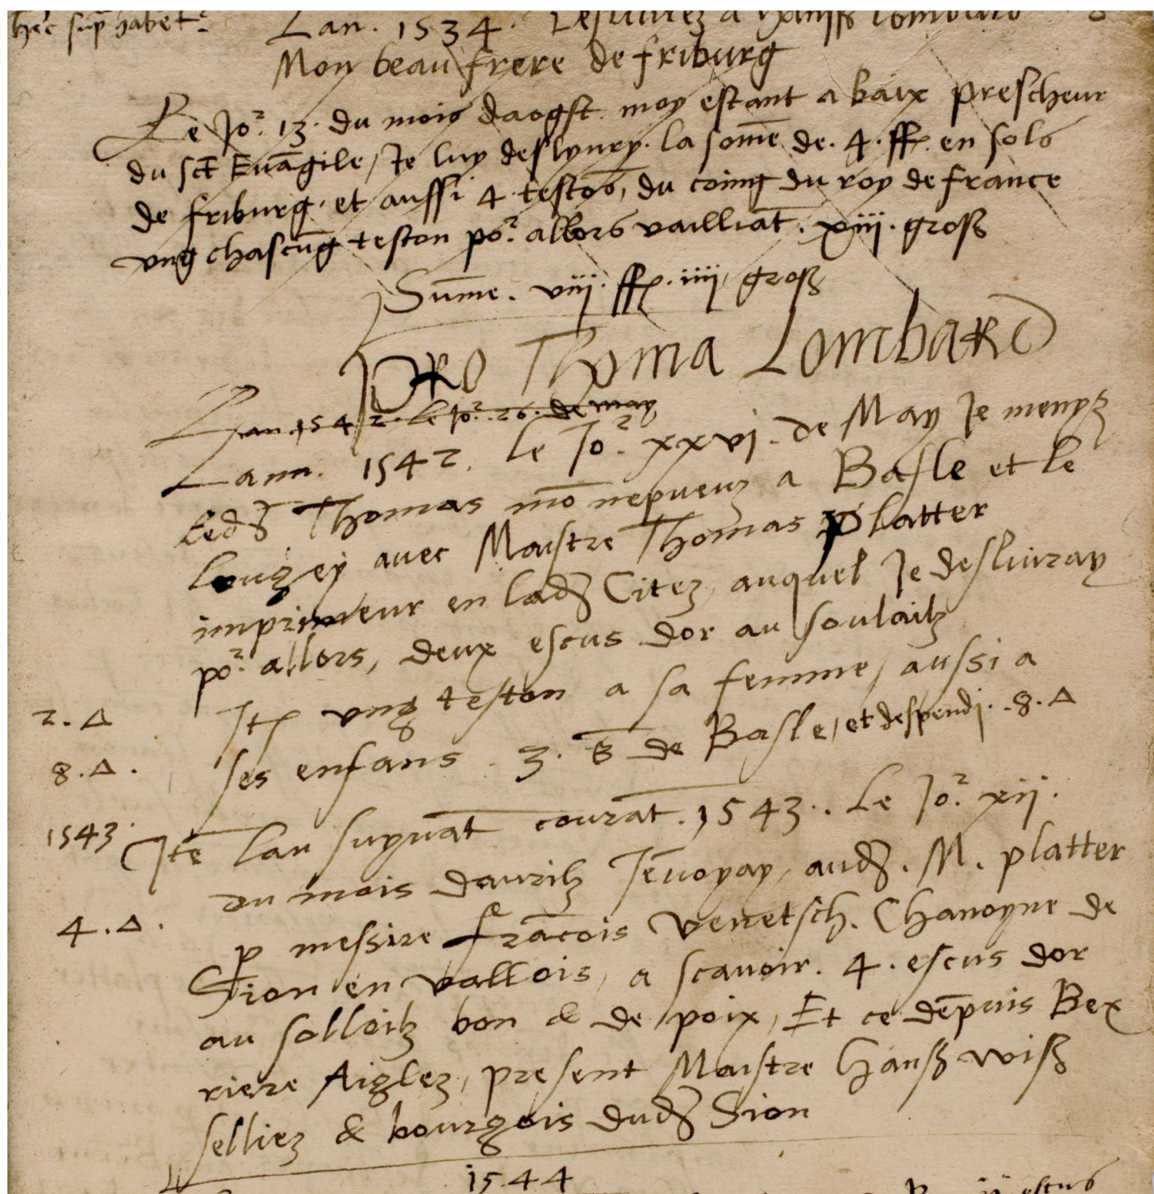 hec sup habet.
Lan. 1534. Deslivrez a Hanss Lombard
Mon beau frere de friburg
Le Jor. 13. du mois daogst moy estant a baix prescheur
du sct Evāgile, Je luy deslyvry. la some de. 4. ff. en sols
de friburg, et aussi 4 testōs, du coing du roy de france
vng chascūg teston por. allors vailliāt. xiii. groß
Sum̄e. viii. ff. iiii, groß
PRO Thoma Lombard
Lan. 1542. Le Jor. 26. de may
Lann. 1542. le Jor. xxvi. de May Je menyz
Ledз Thomas mō nepveuz a Basle et le
avec Maistre Thomas platter
imprimeur en ladз Citez, auquel Je deslivray
por. allors, deux escus dor au soulailz
Itz vng teston a sa femme, aussi a
2. Δ
ses enfans. 3. ß de Basle, et despendi. 8. Δ
8. Δ.
1543. Itē lan suyvāt courāt. 1543. Le Jor. xii.
du mois davrilz Jēvoyay, audз. M. platter
4. Δ.
p messire frācois Venetsch. Chanoyne de
Sion en vallois, a scavoir. 4. escus dor
au solloilz bon & de poix, Et ce dēpuis Bex
riere Aiglez, present Maistre Hanß wiß
selliez & bourgois dudз Sion
1544
escus